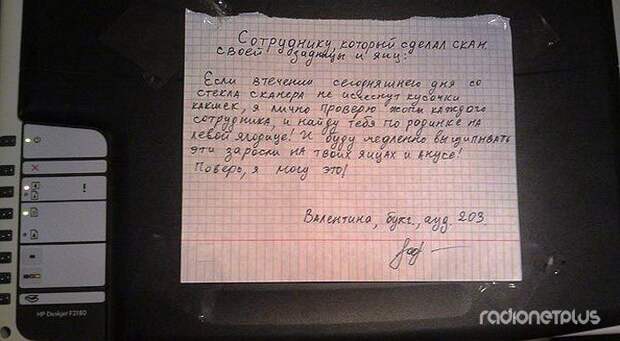 Сотруднику, который сделал скан
своей задницы и яиц:
Если втечении сегодняшнего дня со
стекла сканера не исчезнут кусочки
какшек, я лично проверю жопы каждого
сотрудника, и найду тебя по родинке на
левой ягодице! И буду медленно выщипывать
эти заросли на твоих яйцах и анусе!
Поверь, я могу это!
Валентина, бухг., ауд. 203.
HP Deskjet F2180
radionetplus